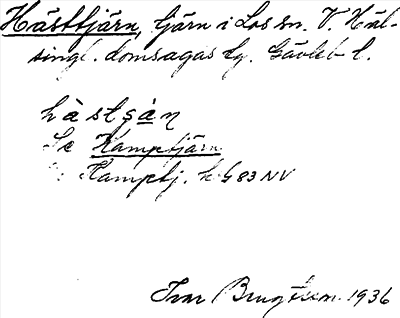 Hästtjärn, tjärn i Los sn. V. Häl-
singl. domsagas tg. Gävleb l.
hàstşán
Se Kamptjärn
Kamptj. k G 83 NV
Ivar Bengtsson 1936